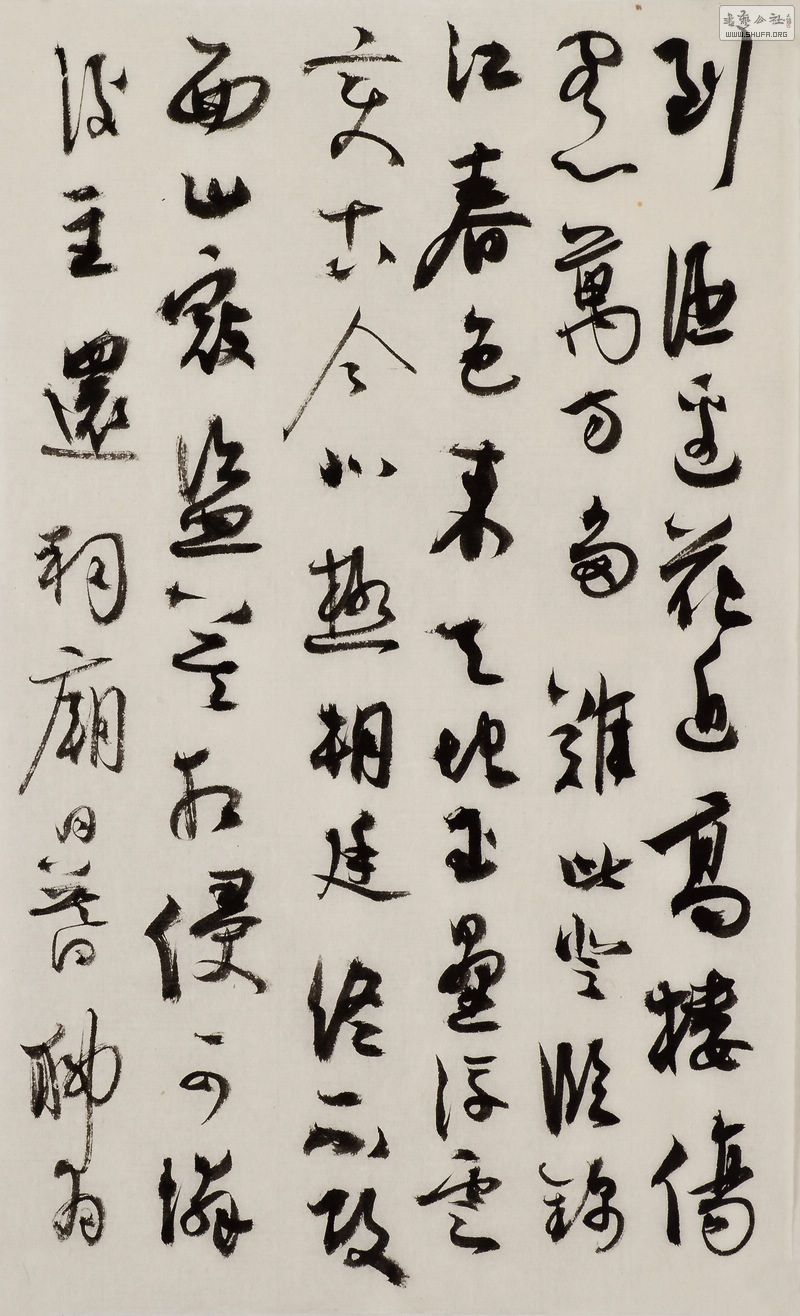 到邊花近高樓傷
客心萬方多難此登臨錦
江春色來天地玉壘浮雲
變古今北極朝廷終不改
西山寇盜莫相侵可憐
後主還祠廟日暮聊為
書藝公社
WWW.SHUFA.ORG